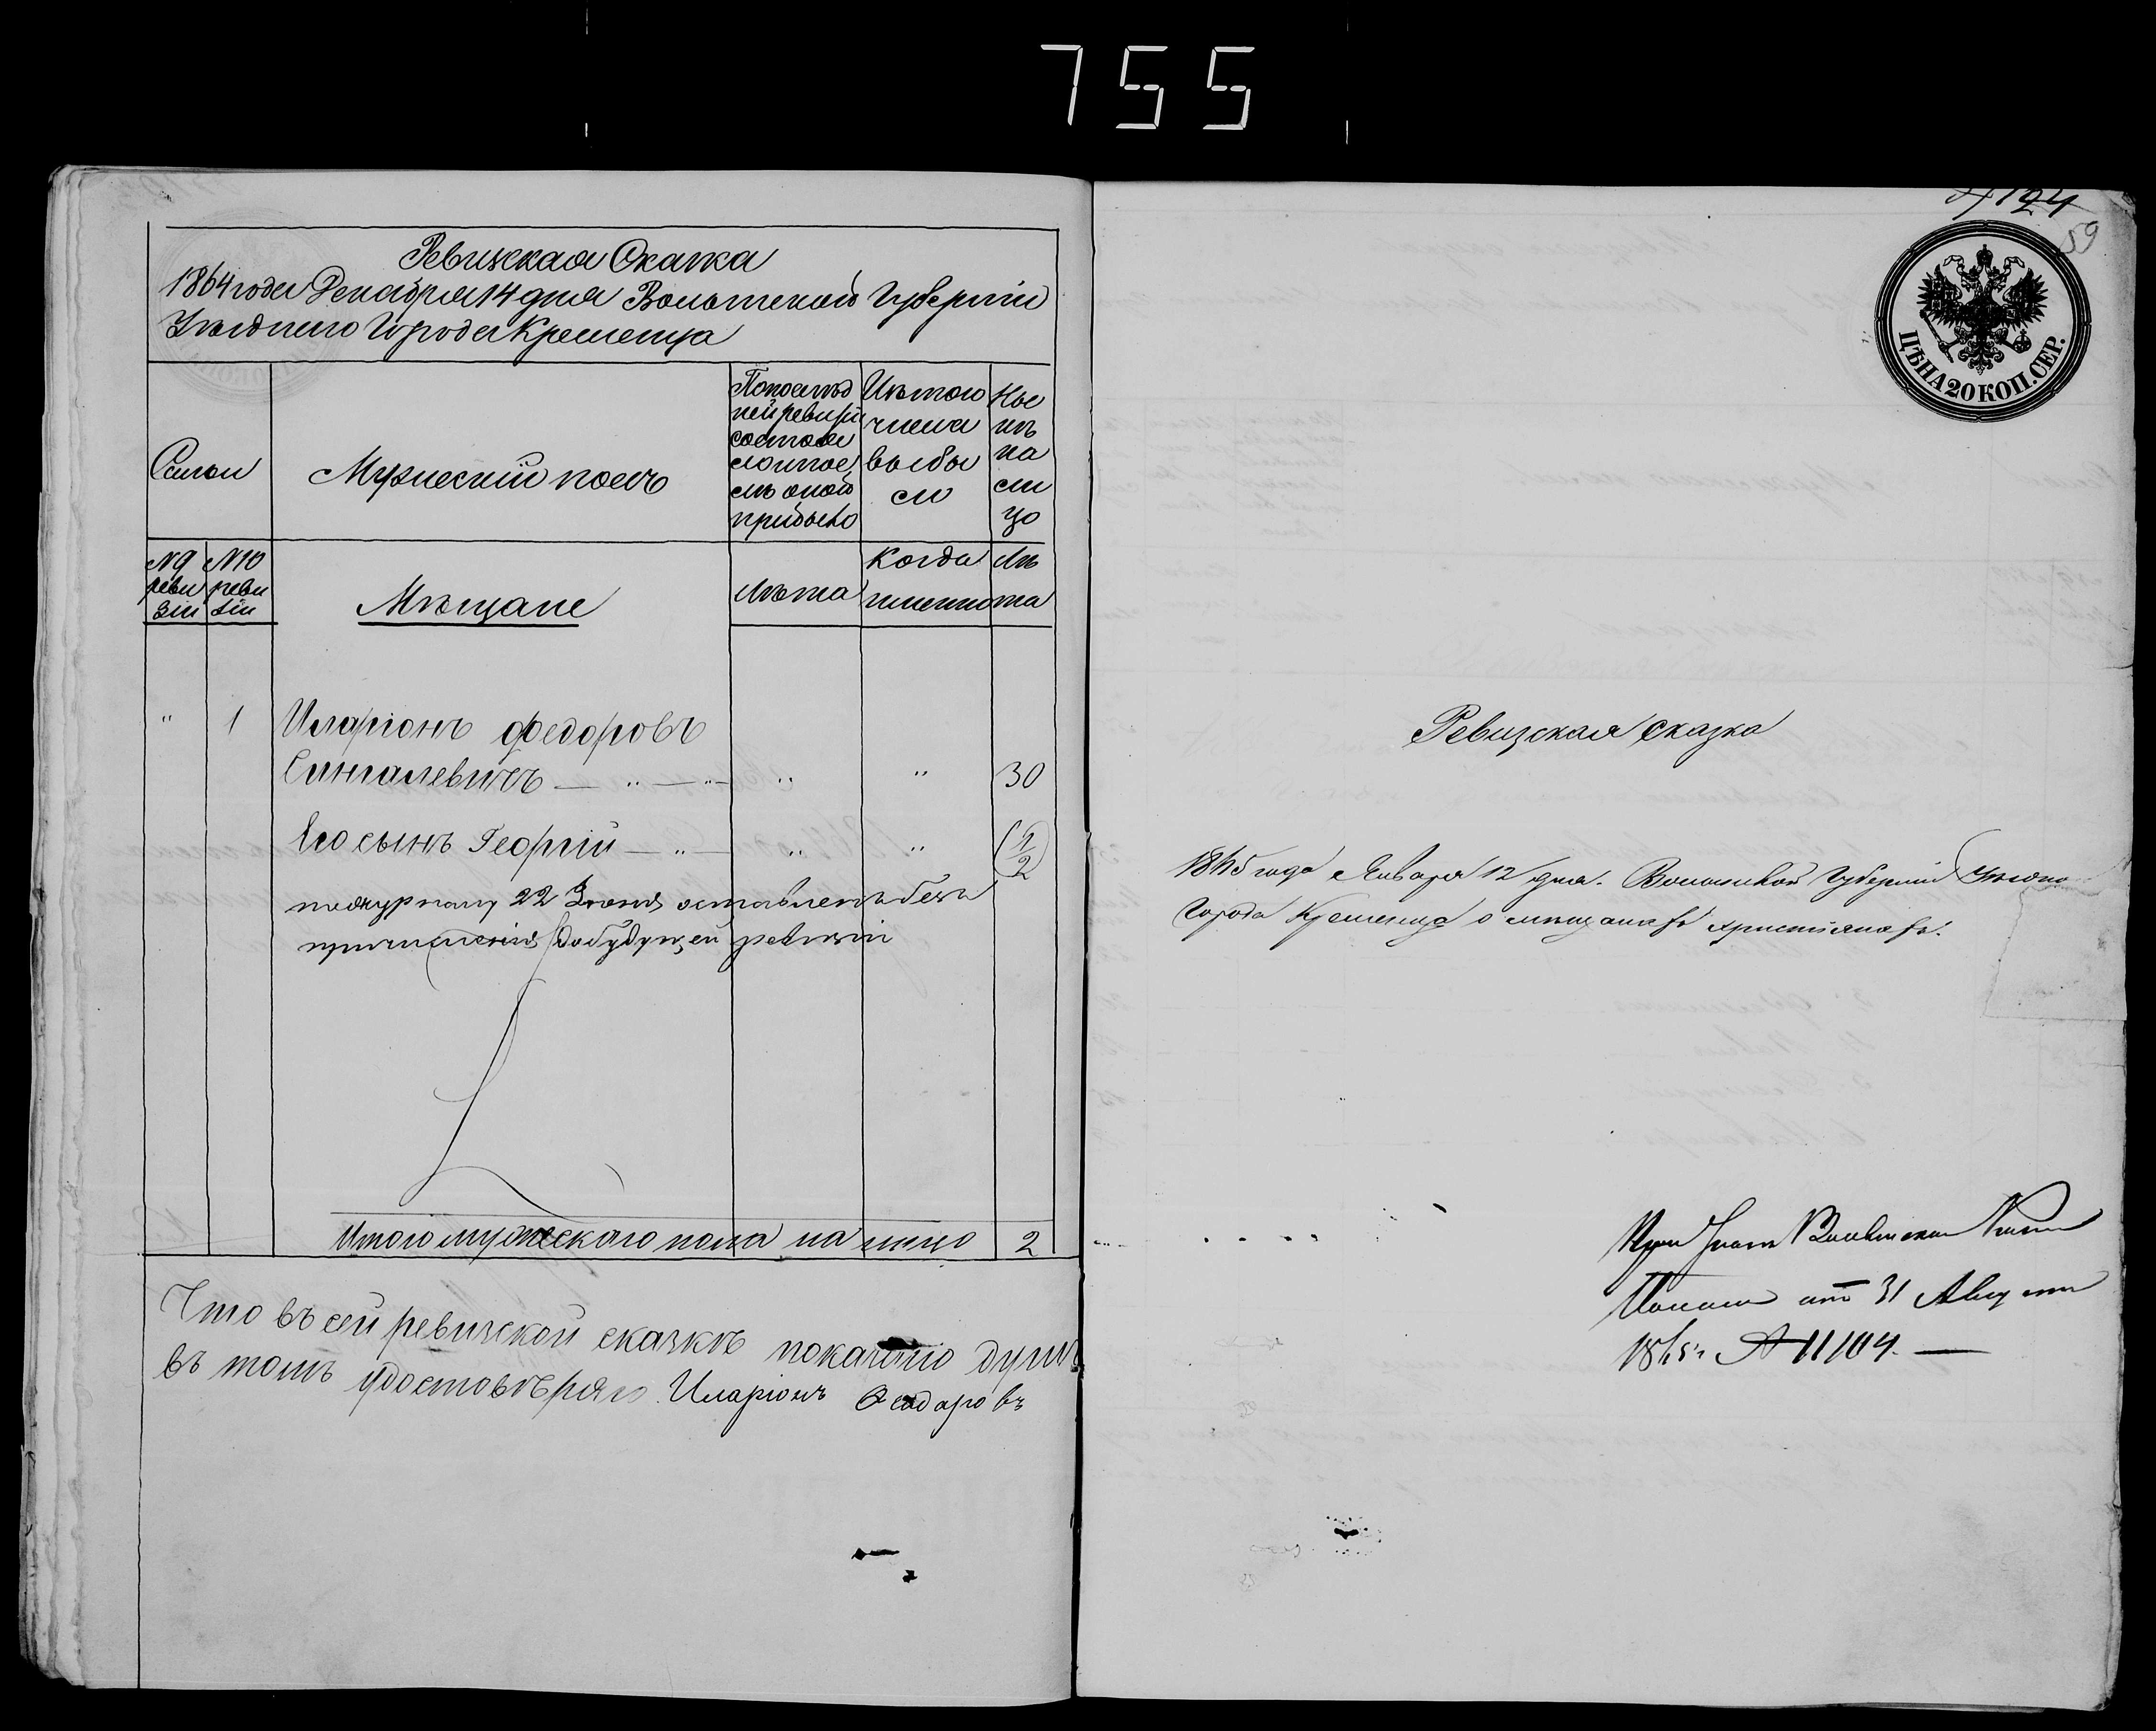 755
Ревизская Сказка
1864 года Декабря 14 дня Волынской Губерніи
Уѣзднаго Города Кременца
Семьи
Мужескій полъ
По послѣд
ней ревизіи
состоя
ло и пос
лѣ оной
прибыло
Изъ того
числа
выбы
ло
Ны
нѣ
на
ли
цо
N9
реви
зіи
N10
реви
зіи
Мѣщане
лѣта
когда
именно
лѣ
та
" 1 Иларіонъ Федоровъ
— " — " — " " 30
Его сынъ Георгій — " — " " 1/2
по журналу 22 Іюня оставленъ безъ
причисленія до будущей ревизіи
Итого мужескаго пола на лицо 2
Что въ сей ревизской сказкѣ показано душъ
въ томъ удостовѣряю. Иларіонъ Федоровъ
124
59
ЦѢНА 20 КОП. СЕР.
Ревизская сказка
1865 года Января 12 дня. Волынской Губерніи Уѣздна
Города Кременца о мѣщанахъ христіянахъ.
При Указѣ Волынской Казен
Палаты отъ 31 Августа
1865 г. № 11104. —